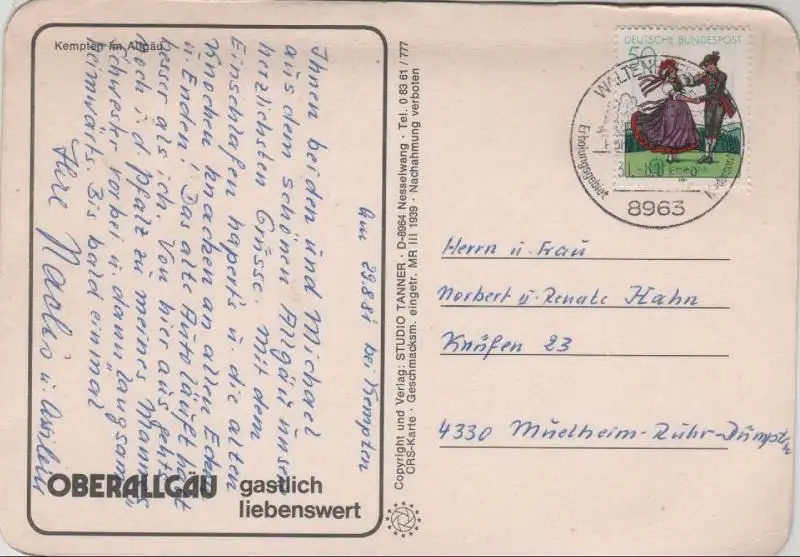 Kempten im Allgäu
Am 29.8.81 bei Kempten
Ihnen beiden und Michael
aus dem schönen Allgäu unsre
herzlichsten Grüsse. Mit dem
Einschlafen hapert's u. die alten
Knochen knacken an allen Ecken
u. Enden! Das alte Auto läuft halt
besser als ich. Von hier aus geht's
noch i. d. Pfalz zu meines Mannes
Schwester vorbei u. dann langsam
heimwärts. Bis bald einmal
Ihre
OBERALLGÄU gastlich
liebenswert
Copyright und Verlag: STUDIO TANNER · D-8964 Nesselwang · Tel. 0 83 61 / 777
CRS-Karte · Geschmacksm. eingetr. MR III 1939 · Nachahmung verboten
DEUTSCHE BUNDESPOST
50
Erholungsgebiet
8963
Herrn u. Frau
Norbert u. Renate Hahn
Knüfen 23
4330 Muelheim-Ruhr-Dümpten